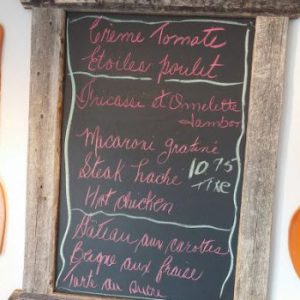 Crème Tomate
Etoiles poulet
Fricassé et Omelette
Jambon
Macaroni gratiné
Steak haché 10.75
TTXe
Hot chicken
Gâteau aux carottes
Beigne aux fraise
Tarte au sucre